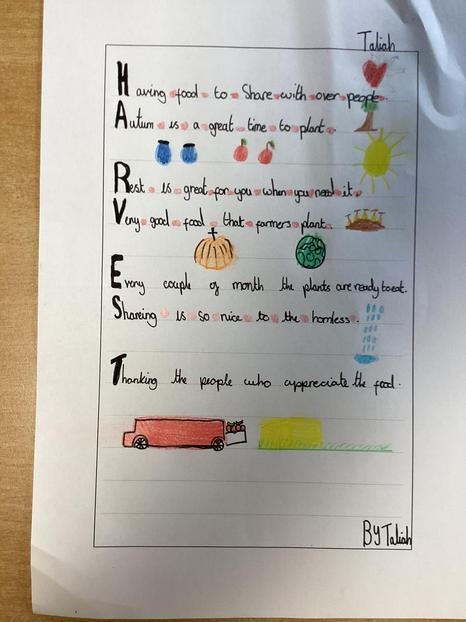 Taliah
Having food to share with over people.
Autum is a great time to plant.
Rest is great for you when you need it.
Very good food that farmers plant.
Every couple of month the plants are ready to eat.
Shareing is so nice to the homless.
Thanking the people who appreciate the food.
By Taliah